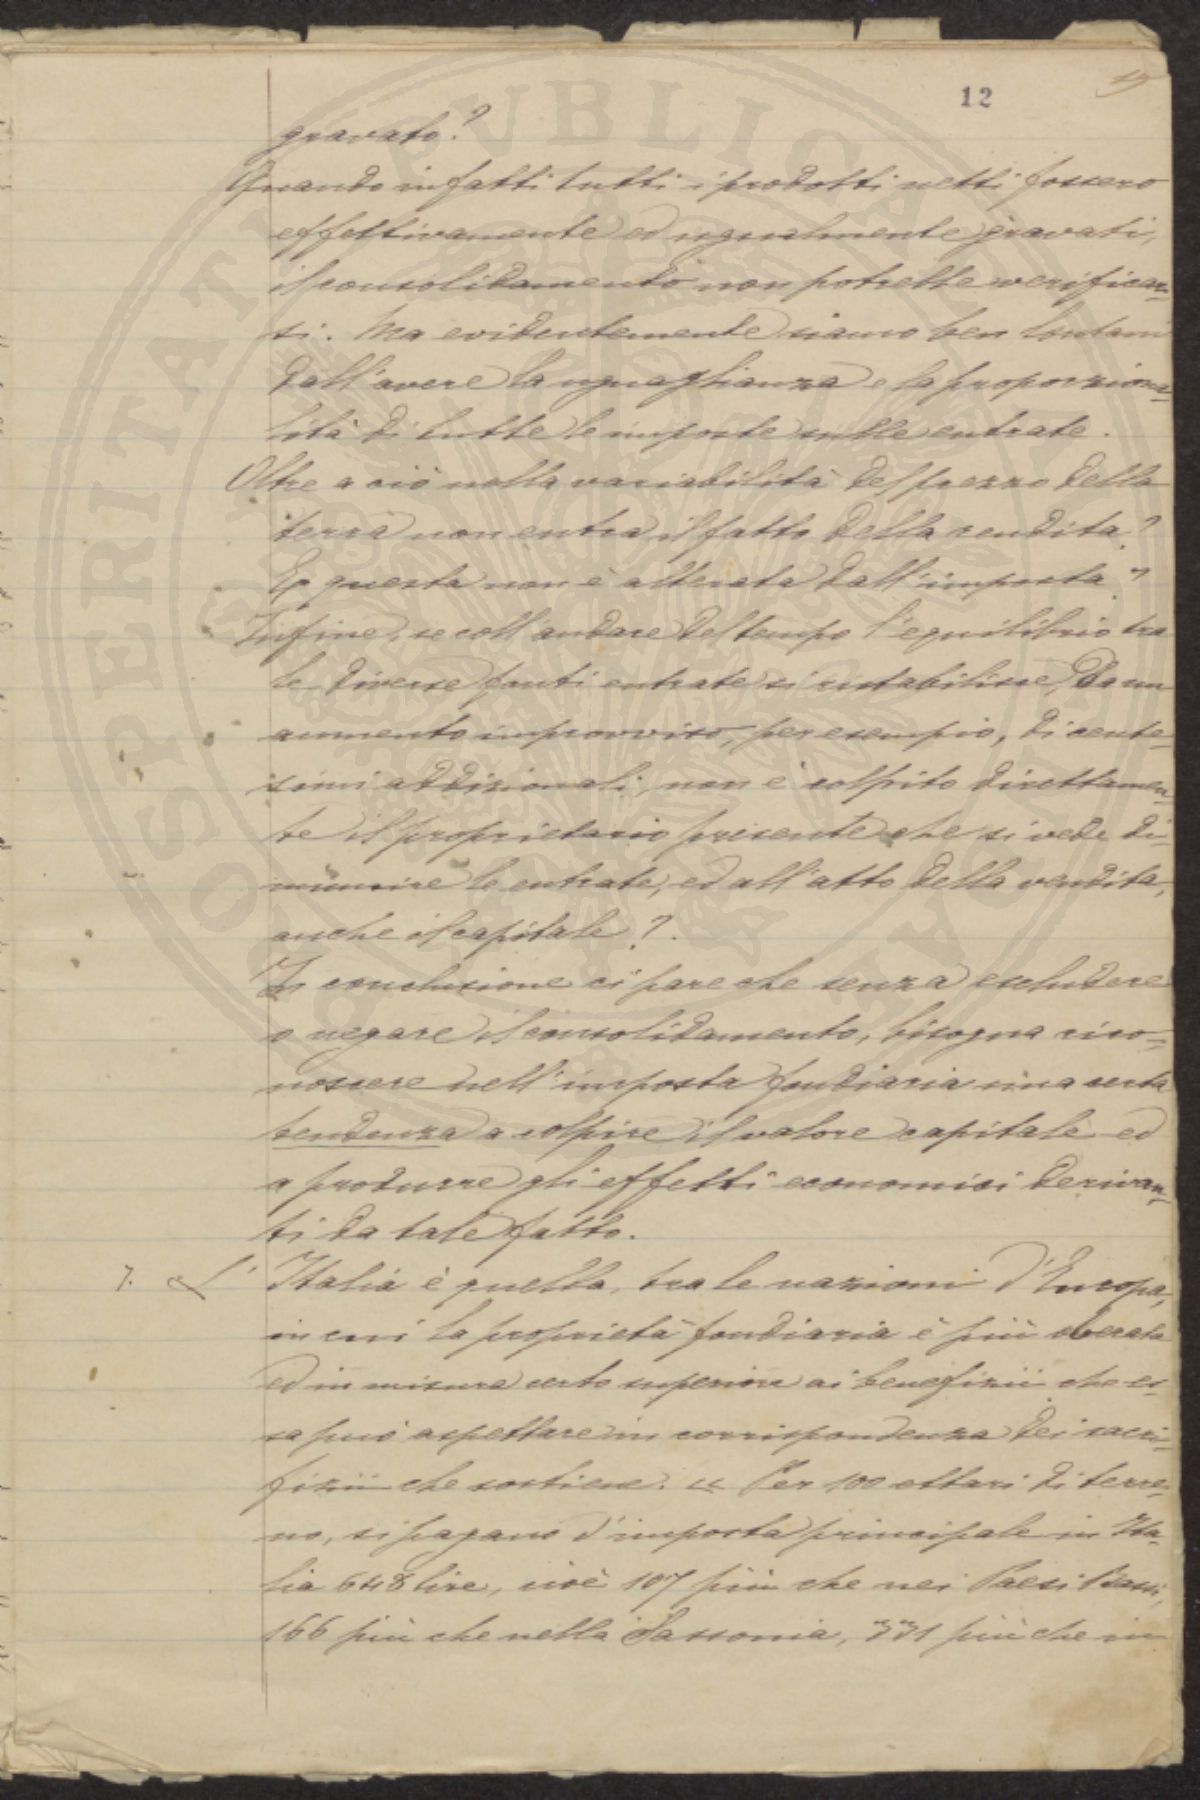 12
gravato?
Quando infatti tutti i prodotti netti fossero
effettivamente ed ugualmente gravati,
il consolidamento non potrebbe verificar-
si. Ma evidentemente siamo ben lontani
dall'avere la uguaglianza e la proporziona-
lità di tutte le imposte sulle entrate.
Oltre a ciò nella variabilità del prezzo della
terra non entra il fatto della rendita?
E questa non è alterata dall'imposta?
Infine, se coll'andare del tempo l'equilibrio tra
le diverse fonti entrate si ristabilisse, da un
aumento improvviso, per esempio, di cente-
simi addizionali, non è colpito direttamen-
te il proprietario presente che si vede di-
minuire le entrate, ed all'atto della vendita,
anche il capitale?.
In conclusione ci pare che senza escludere
o negare il consolidamento, bisogna rico-
noscere nell'imposta fondiaria una certa
tendenza a colpire il valore capitale ed
a produrre gli effetti economici derivan-
ti da tale fatto.
7. L'Italia è quella, tra le nazioni d'Europa,
in cui la proprietà fondiaria è più oberata
ed in misura certo superiore ai benefizii che es-
sa può aspettare in corrispondenza dei sacri-
fizii che sostiene. « Per 100 ettari di terre-
no, si pagano d'imposta principale in Ita-
lia 648 lire, cioè 107 più che nei Paesi Bassi,
166 più che nella Sassonia, 331 più che in
OSPERITATI PUBLICAE AUGENDAE